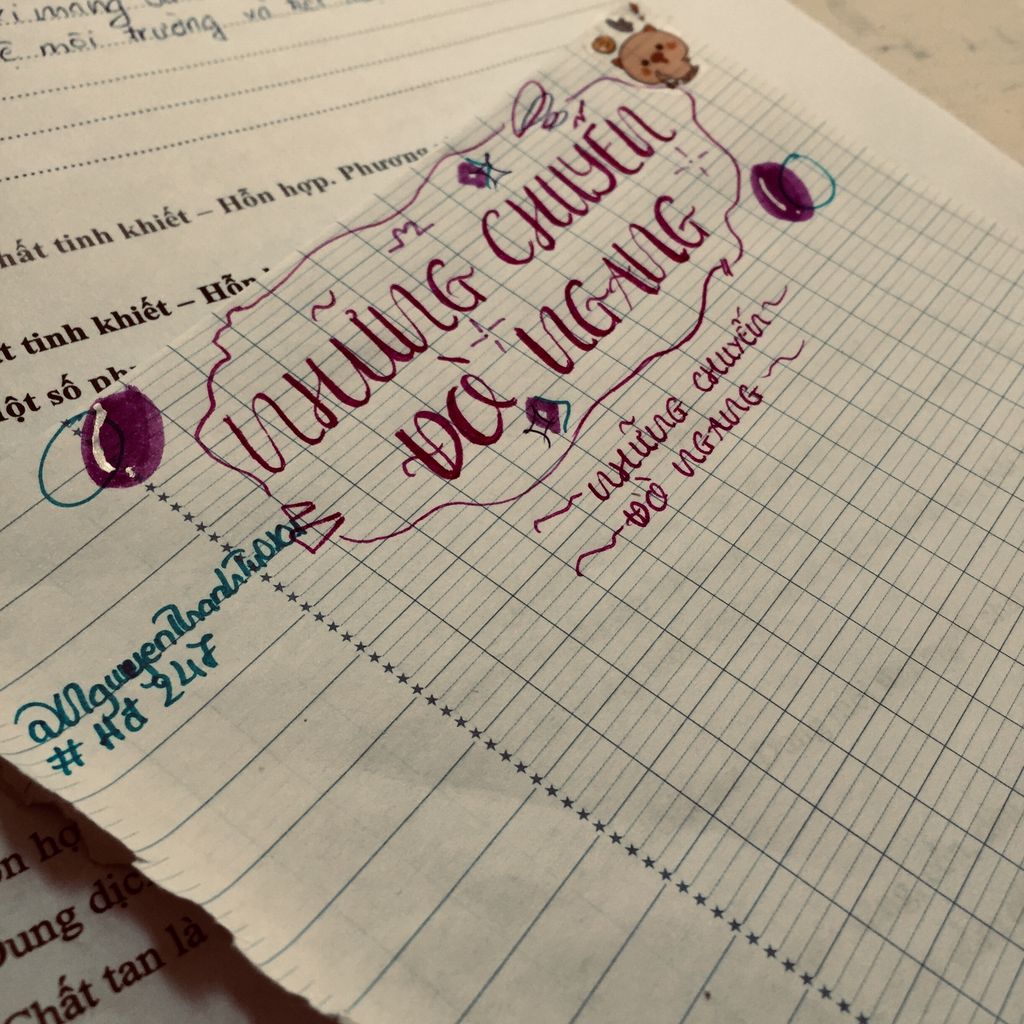 mang
môi trường và
hất tinh khiết – Hỗn hợp. Phương
t tinh khiết – Hỗn
ột số
NHỮNG CHUYẾN
ĐÒ NGANG
NHỮNG CHUYẾN
ĐÒ NGANG
# Hđ 247
Dung dịc
Chất tan là